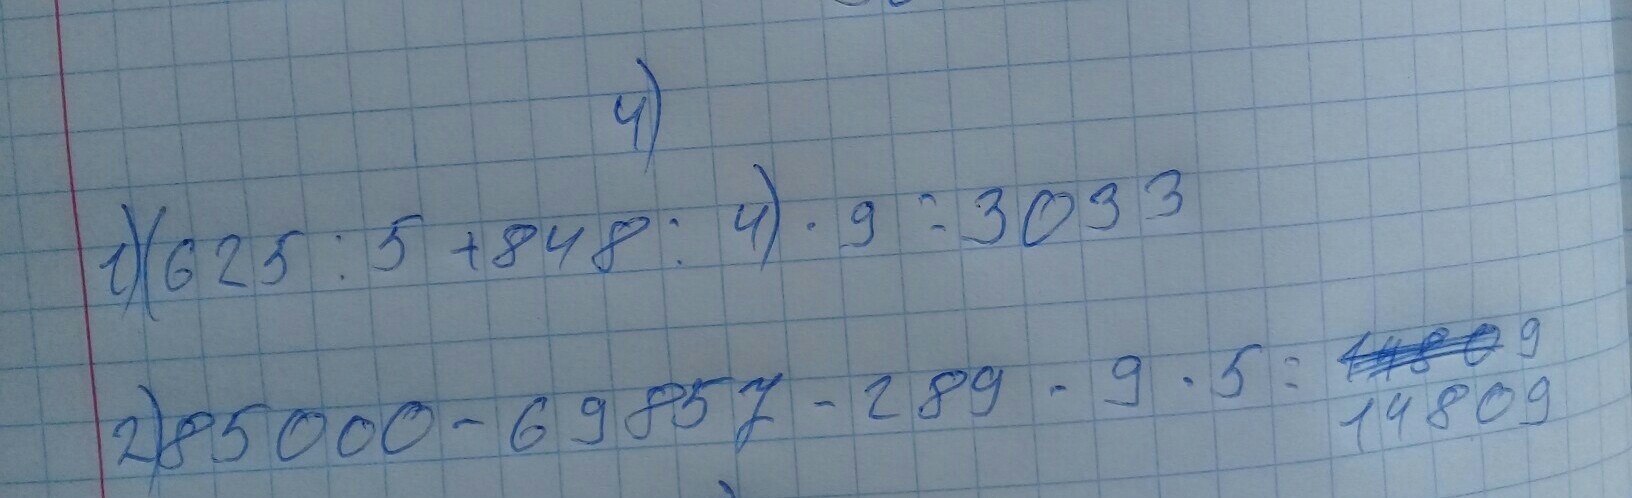 4)
1)(625 : 5 + 848 : 4) · 9 = 3033
2) 85000 - 69857 - 289 - 9 · 5 = 9
14809